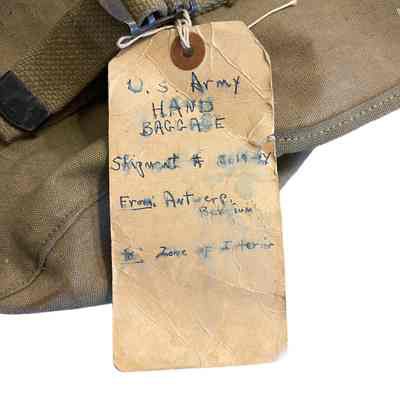 U.S. Army
HAND
BAGGAGE
Shipment #
From: Antwerp,
Belgium
To: Zone of Interior